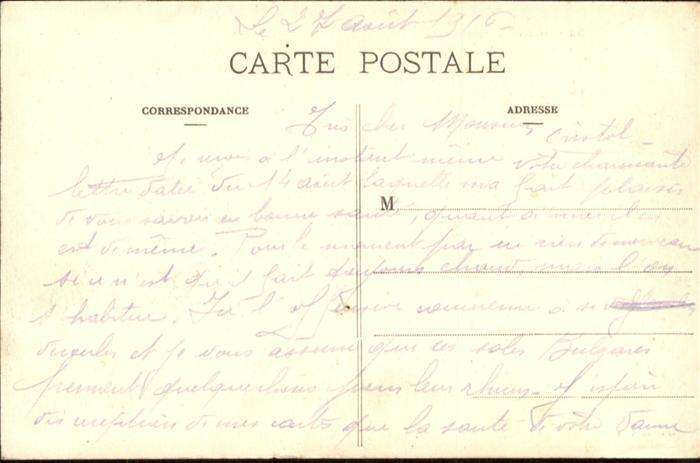 Le 27 août 1916
CARTE POSTALE
CORRESPONDANCE
ADRESSE
cher Monsieur Cristol
Je reçois à l'instant même votre charmante
lettre datée du 14 août laquelle m'a fait plaisir
M
de vous savoir en bonne santé, quant à moi il en
est de même. Pour le moment pas un rien de nouveau
si ce n'est qu'il fait toujours chaud, mais l'on
s'habitue. Ici l'offensive commence à se
et je vous assure que ces sales Bulgares
prennent quelque chose pour leur rhume. J'espère
dès réception de mes cartes que la santé de votre Dame